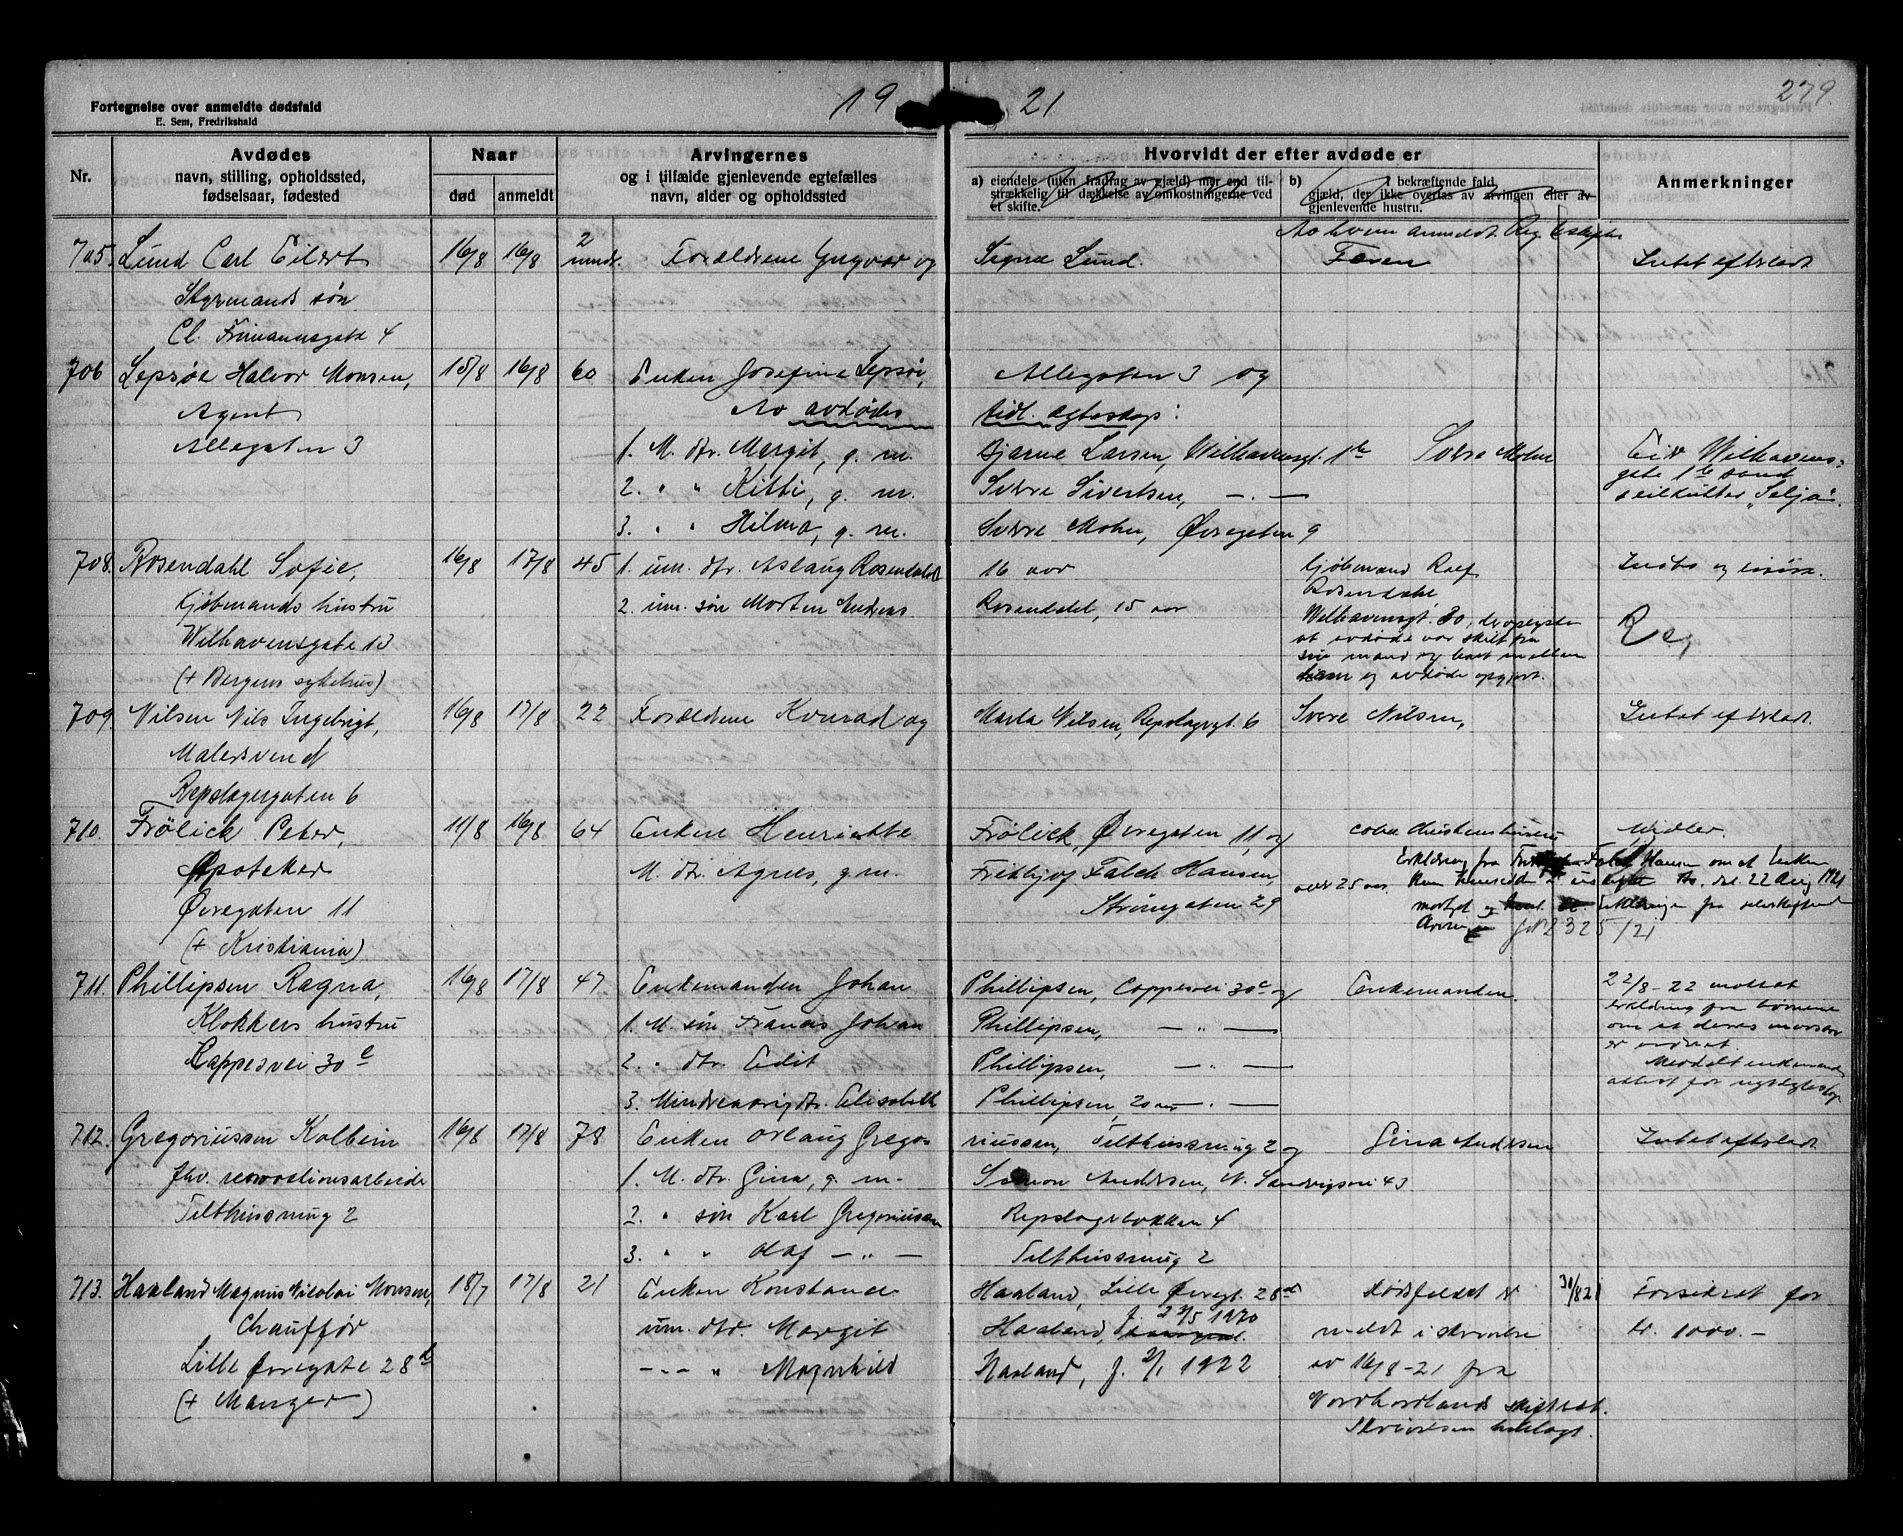 Fortegnelse over anmeldte dødsfald
E. Sem, Fredrikshald
19 21
279.
Nr.
Avdødes
navn, stilling, opholdssted,
fødselsaar, fødested
Naar
død anmeldt
Arvingernes
og i tilfælde gjenlevende egtefælles
navn, alder og opholdssted
Hvorvidt der efter avdøde er
a) eiendele (uten fradrag av gjæld) mer end til-
strækkelig til dækkelse av omkostningerne ved
et skifte.
b) I bekræftende fald
gjæld, der ikke overtas av arvingen eller av
gjenlevende hustru.
Anmerkninger
Av hvem anmeldt. Reg.
705. Lund Carl Eilert 16/8 16/8 2 Forældrene Yngvar og Signe Lund. Faren Intet efterladt
mndr.
Styrmands søn
Cl. Frimannsgate 4
706 Lepsøe Halvor Monsen, 15/8 16/8 60 Enken Josefine Lepsøe, Allegaten 3 og
Agent Av avdødes tidl. egteskap:
Allegaten 3
1. M. dtr. Margit, g. m. Bjarne Larsen, Welhavensgt. 1b Sverre Mohn Eier Welhavens-
gate 1b samt
2. " " Kitti, g. m. Sverre Sivertsen, — " — seilkutter "Selja".
3. " " Hilma, g. m. Sverre Mohn, Øvregaten 9
708. Rosendahl Sofie, 16/8 17/8 45 1. um. dtr. Aslaug Rosendahl 16 aar Kjøbmand Rolf
Kjøbmands hustru 2. um. søn Morten Andreas Rosendahl, 15 aar Rosendahl
Welhavensgate 13 Welhavensgt. 30, der oplyste
at avdøde var skilt fra Reg
sin mand og boet mellem
(+ Bergens sykehus) ham og avdøde opgjort.
709. Nilsen Nils Ingebrigt, 16/8 17/8 22 Forældrene Konrad og Marta Nilsen, Repslagergt. 6 Sverre Nilsen, Intet efterladt.
Malersvend
Repslagergaten 6
710. Frölich Peter, 11/8 16/8 64 Enken Henriette Frölich, Øvregaten 11, og Midler.
Apoteker M. dtr. Agnes, g. m. Frithjof Falch Hansen, over 25 aar.
Erklæring fra Falch Hansen om at Enken
22 Aug 1921
Øvregaten 11 Strømgaten 29
mottat og
(+ Kristiania) 2325/21
711. Phillipsen Ragna, 16/8 17/8 47 Enkemanden Johan Phillipsen, Cappesvei 30c og Enkemanden. 22/8-22 mottat
Klokkers hustru 1. M. søn Francis Johan Phillipsen, — " — erklæring fra børnene
om at deres morsarv
Cappesvei 30c 2. " dtr. Edit Phillipsen, — " — er utbetalt.
Meddelt enkemands
3. Mindreaarig dtr. Elisabeth Phillipsen, 20 aar — " — attest for nyt egteskap
712. Gregoriussen Kolbein 16/8 17/8 78 Enken Orlaug Gregoriussen, Telthussmug 2 og Gina Andersen Intet efterladt
Fhv. renovationsarbeider 1. M. dtr. Gina, g. m. Simon Andersen, N. Sandvigsvei 43
Telthussmug 2 2. " søn Karl Gregoriussen Repslagerbakken 4
3. " " Olaf — " — Telthussmug 2
713. Haaland Magnus Nicolai Monsen, 18/7 17/8 21 Enken Konstance Haaland, Lille Øvregt. 28 Dødsfaldet er 30/8 21 Forsikret for
Chauffør um. dtr. Margit Haaland, f. 27/5 1920 meldt i skrivelse kr. 1000.-
Lille Øvregate 28 — " — " Magnhild Haaland, f. 2/1 1922 av 16/8-21 fra
(+ Manger) Nordhordlands skifteret.
Skrivelsen henlagt.